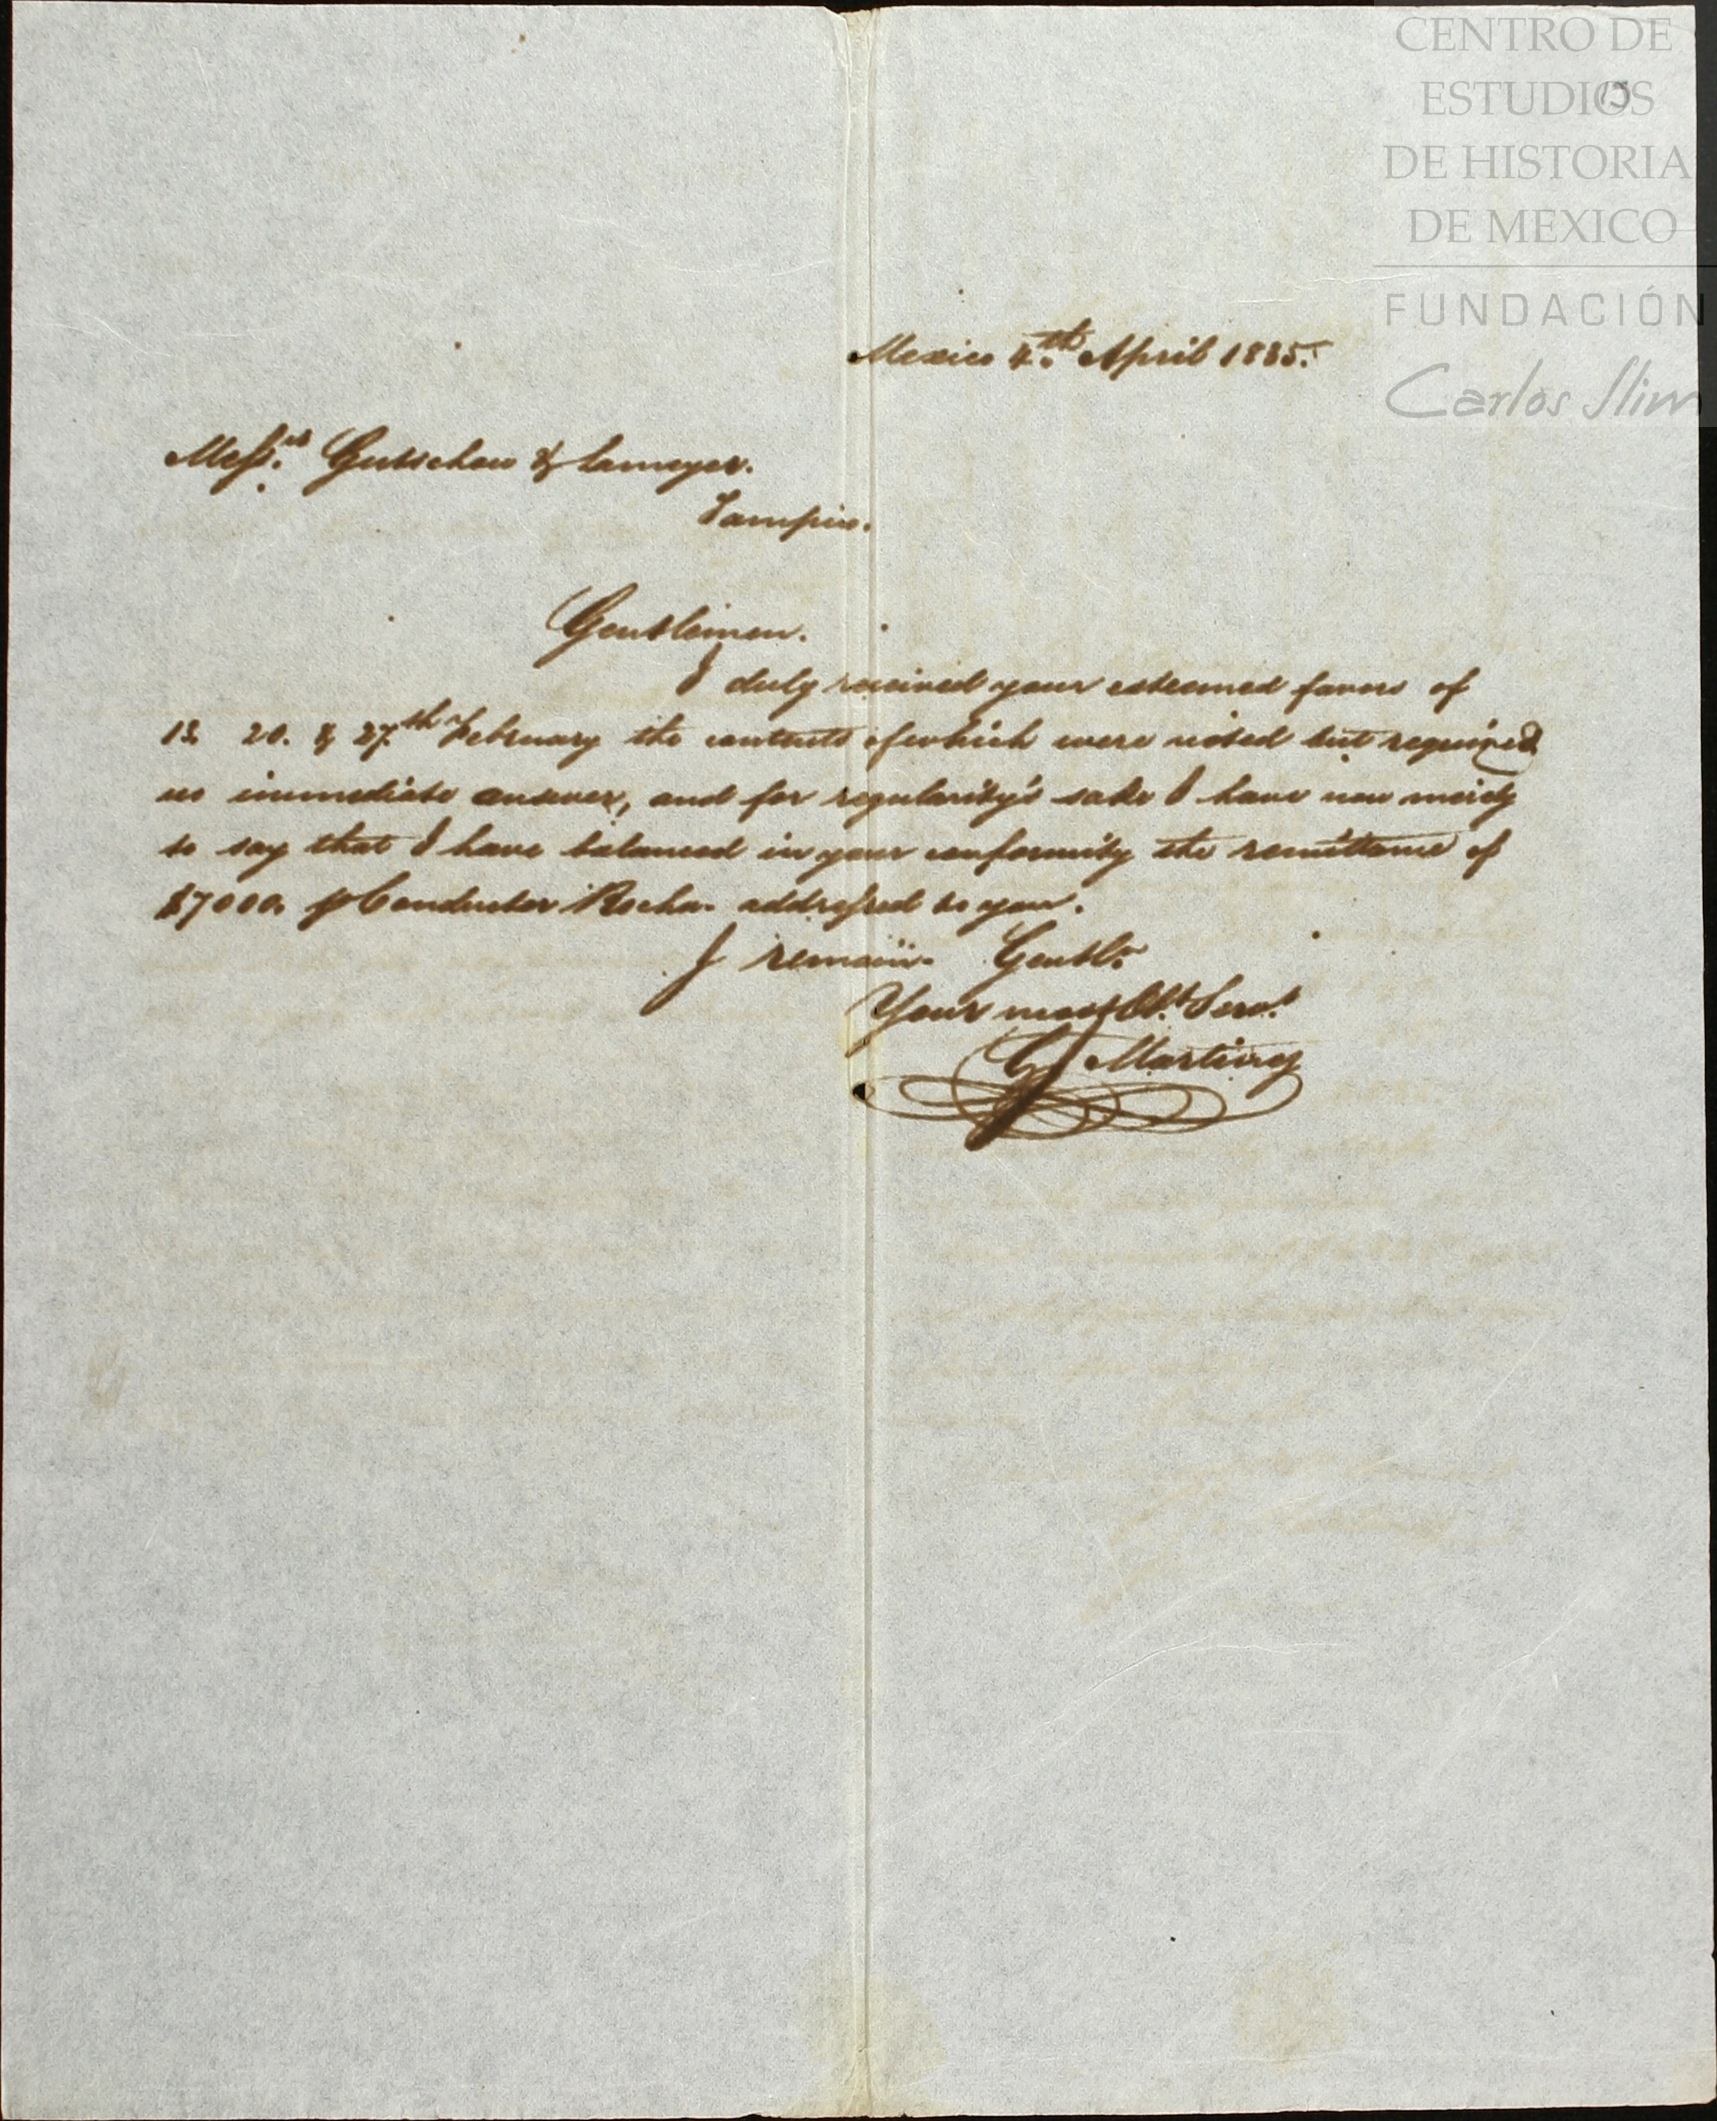 CENTRO DE
ESTUDIOS
DE HISTORIA
DE MEXICO
FUNDACIÓN
Carlos Slim
15
Mexico 4.th April 1835.
Messrs. Gutschow & Lameyer.
Tampico.
Gentlemen.
I duly received your esteemed favors of
13. 20. & 27.th February the contents of which were noted but required
no immediate answer, and for regularity's sake I have now merely
to say that I have balanced in your conformity the remittance of
$7000. p Conductor Rocha. addressed to you.
I remain. Gentln.
Your most Obt. Servt.
Martinez